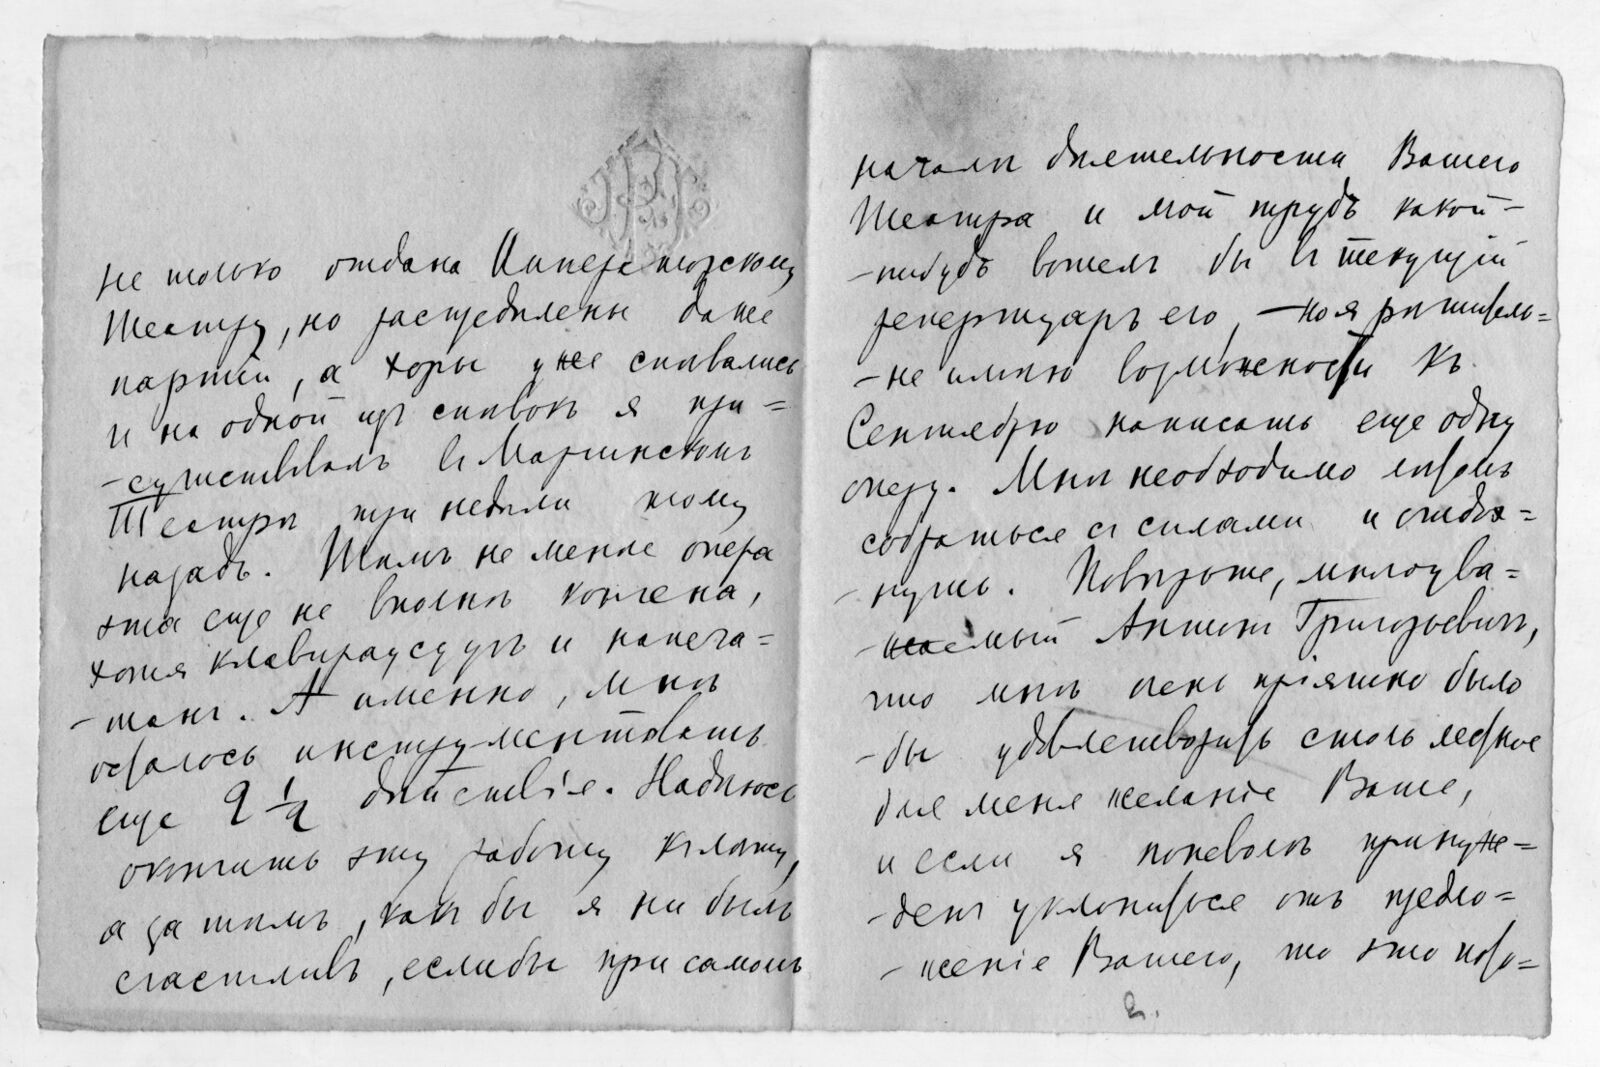 не только отдана Императорскому
Театру, но распредѣлены даже
партіи, а хоры уже спѣвались
и на одной изъ спѣвокъ я при=
-сутствовалъ въ Маріинскомъ
Театрѣ три недѣли тому
назадъ. Тѣмъ не менѣе опера
эта еще не вполнѣ кончена,
хотя клавираусцугъ и напеча=
-танъ. А именно, мнѣ
осталось инструментовать
еще 2 1/2 дѣйствія. Надѣюсь
окончить эту работу къ лѣту,
а затѣмъ, какъ бы я ни былъ
счастливъ, еслибы при самомъ
началѣ дѣятельности Вашего
Театра и мой трудъ какой-
-нибудь вошелъ бы въ текущій
репертуаръ его, - но я рѣшитель=
-не имѣю возможности къ
Сентябрю написать еще одну
оперу. Мнѣ необходимо лѣтомъ
собраться съ силами и отдох=
-нуть. Повѣрьте, многоува=
-жаемый Антонъ Григорьевичъ,
что мнѣ очень пріятно было
-бы удовлетворить столь лестное
для меня желаніе Ваше,
и если я поневолѣ принуж=
-денъ уклониться отъ предло=
-женія Вашего, то это
2.